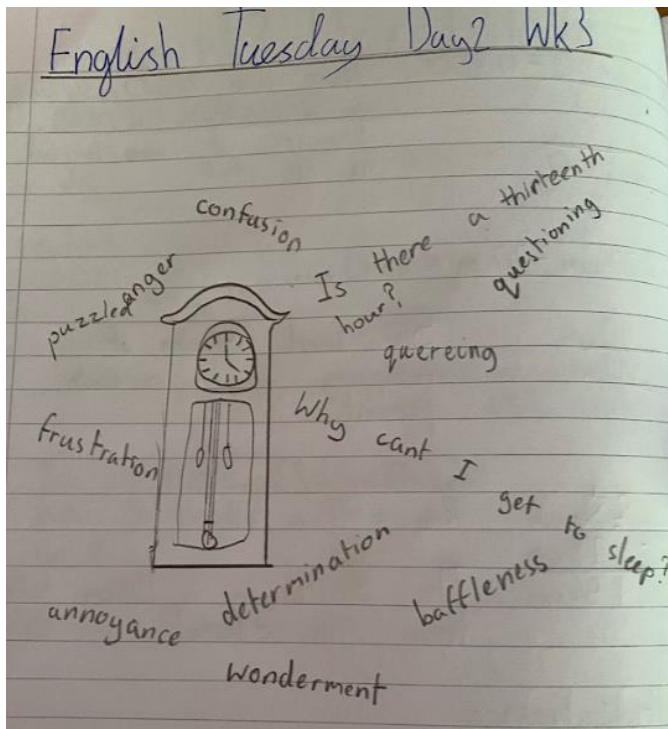 English Tuesday Day2 Wk3
confusion
Is there a thirteenth
hour?
questioning
anger
puzzled
quereing
frustration
Why cant I get to sleep?
determination
baffleness
annoyance
wonderment